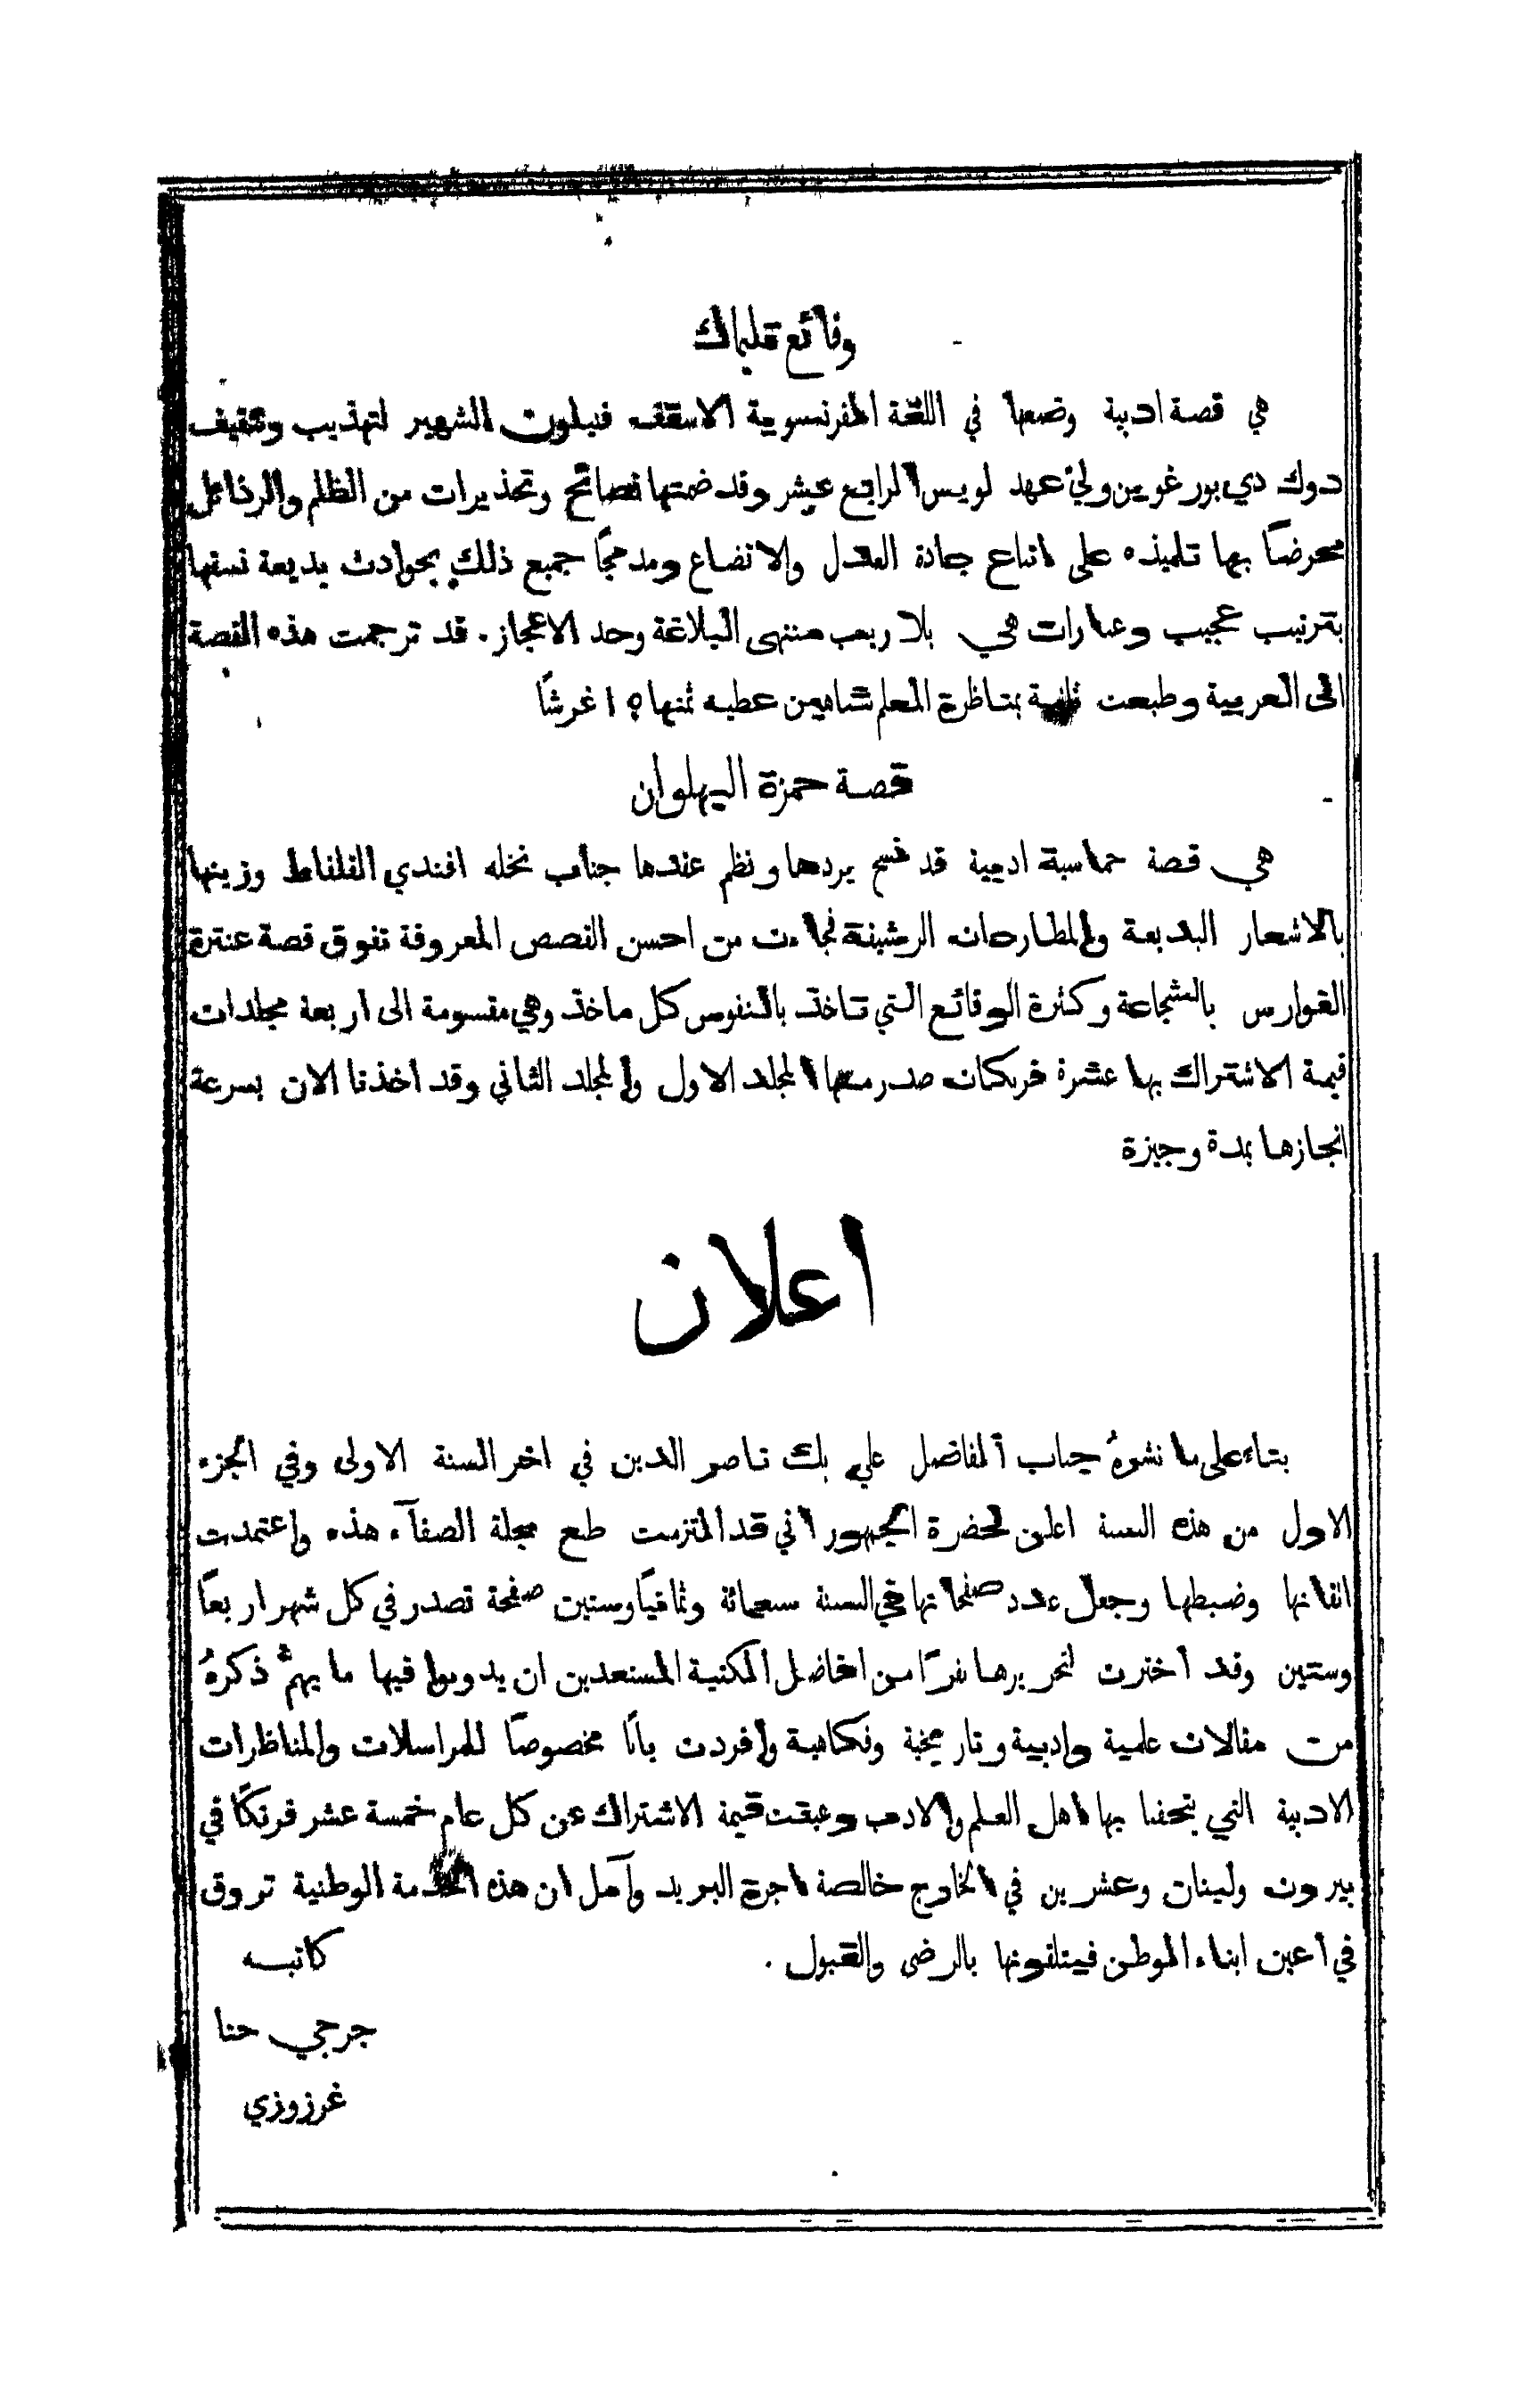 وقائع تليماك
هي قصة ادبية وضعها في اللغة الفرنسوية الاسقف فنيلون الشهير لتهذيب وتثقيف
دوك دي بورغوين ولي عهد لويس الرابع عشر وقد ضمنها نصائح وتحذيرات من الظلم والرذائل
محرضًا بها تلميذه على اتباع جادة العدل والاتضاع ومدمجًا جميع ذلك بحوادث بديعة نسقها
بترتيب عجيب وعبارات هي بلا ريب منتهى البلاغة وحد الاعجاز . قد ترجمت هذه القصة
الى العربية وطبعت ثانية بمناظرة المعلم شاهين عطيه ثمنها ١٥ غرشًا
قصة حمزة البهلوان
هي قصة حماسية ادبية قد نسج بردها ونظم عقدها جناب نخله افندي القلفاط وزينها
بالاشعار البديعة والمطارحات الرشيقة فجاءت من احسن القصص المعروفة تفوق قصة عنترة
الفوارس بالشجاعة وكثرة الوقائع التي تاخذ بالنفوس كل ماخذ وهي مقسومة الى اربعة مجلدات
قيمة الاشتراك بها عشرة فرنكات صدر منها المجلد الاول والمجلد الثاني وقد اخذنا الان بسرعة
انجازها بمدة وجيزة
اعلان
بناء على ما نشرهُ جناب الفاضل علي بك ناصر الدين في اخر السنة الاولى وفي الجزء
الاول من هذه السنة اعلن لحضرة الجمهور اني قد التزمت طبع مجلة الصفآء هذه واعتمدت
اتقانها وضبطها وجعل عدد صفحاتها في السنة سبعمائة وثمانيًا وستين صفحة تصدر في كل شهر اربعًا
وستين وقد اخترت لتحريرها نفرًا من افاضل الكتبة المستعدين ان يدونوا فيها ما يهمّ ذكرهُ
من مقالات علمية وادبية وتاريخية وفكاهية وافردت بابًا مخصوصًا للمراسلات والمناظرات
الادبية التي يتحفنا بها اهل العلم والادب وعينت قيمة الاشتراك عن كل عام خمسة عشر فرنكًا في
بيروت ولبنان وعشرين في الخارج خالصة اجرة البريد وآمل ان هذه الخدمة الوطنية تروق
في أعين ابناء الوطن فيتلقونها بالرضى والقبول .
كاتبه
جرجي حنا
غرزوزي